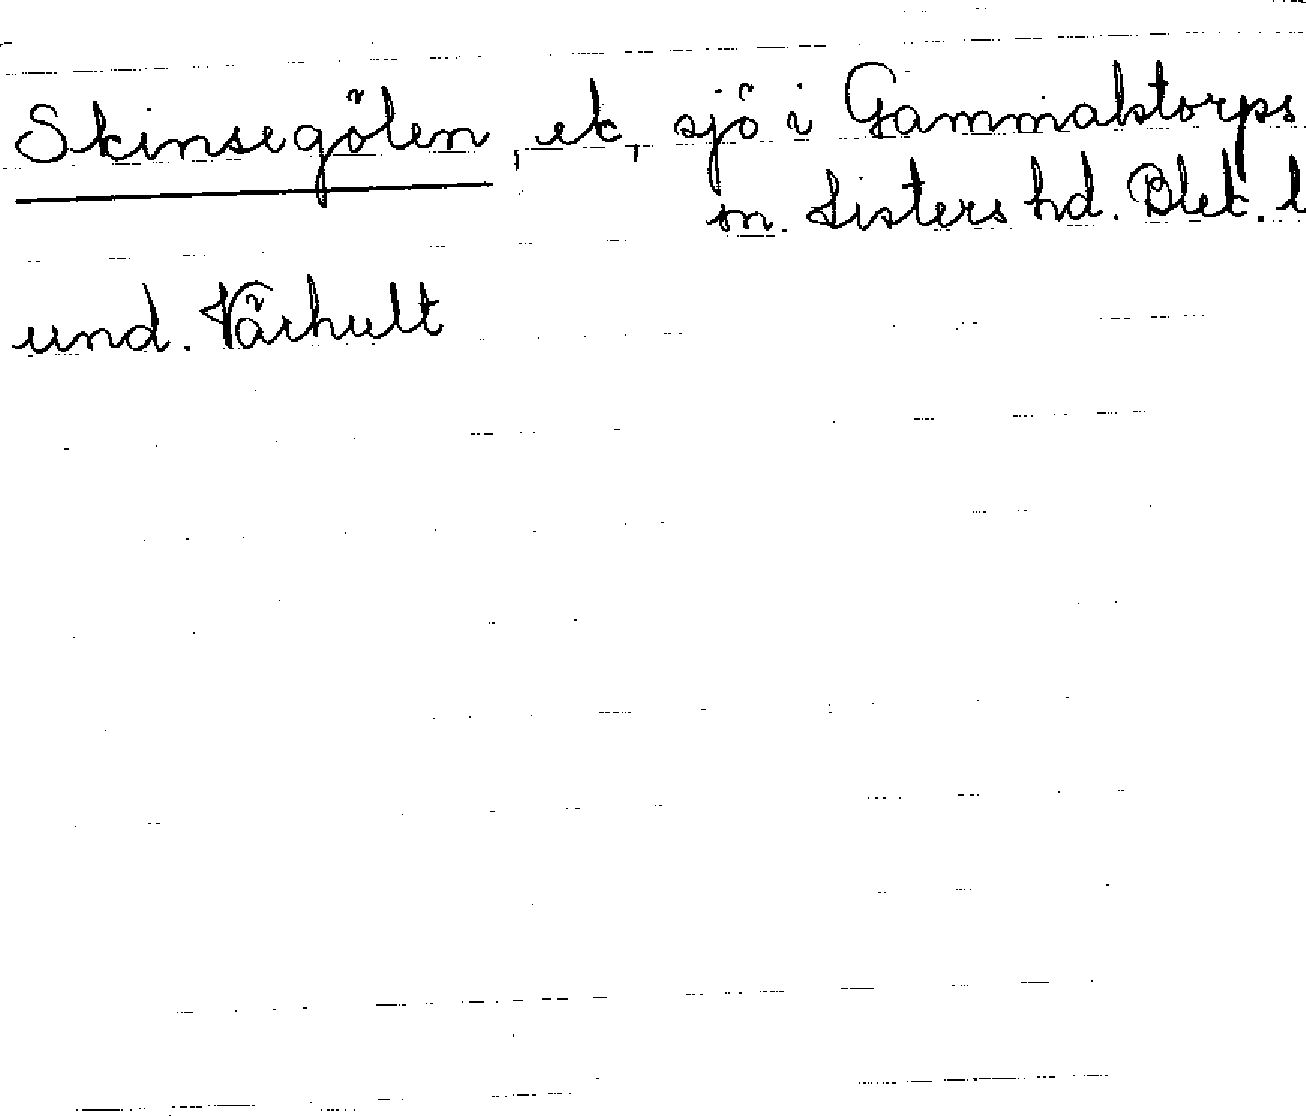 Skinsegölen, ek, sjö i Gammalstorps
sn. Listers hd. Blek. l
und. Vårhult